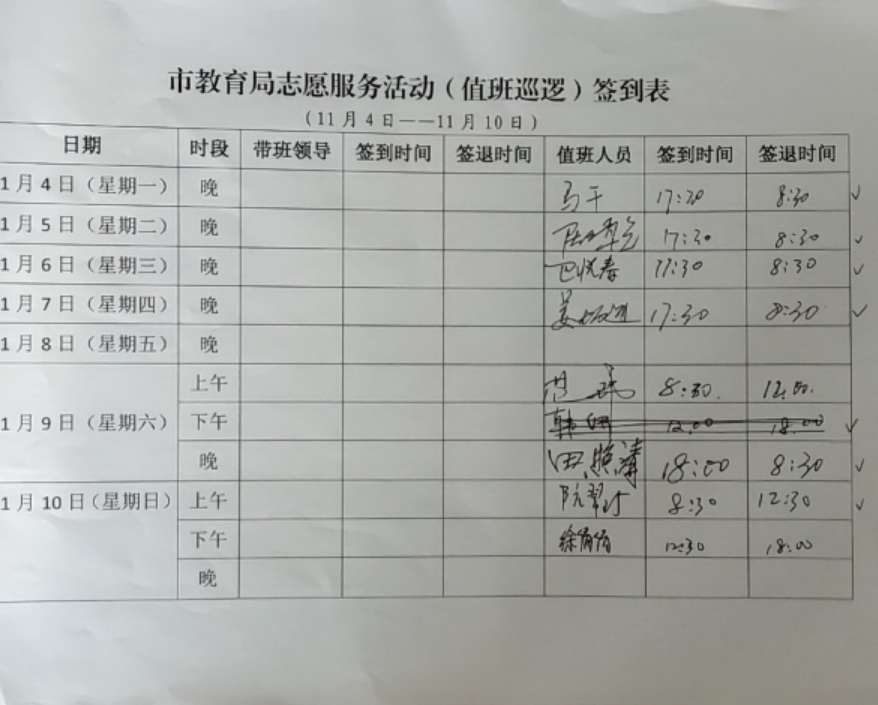 市教育局志愿服务活动（值班巡逻）签到表
（11月4日——11月10日）
日期 时段 带班领导 签到时间 签退时间 值班人员 签到时间 签退时间
1月4日（星期一） 晚 马干 17:30 8:30 ✓
1月5日（星期二） 晚 17:30 8:30 ✓
1月6日（星期三） 晚 17:30 8:30 ✓
1月7日（星期四） 晚 17:30 8:30 ✓
1月8日（星期五） 晚
1月9日（星期六） 上午 8:30. 12:00.
下午 12:00 18:00 ✓
晚 田照涛 18:00 8:30 ✓
1月10日（星期日） 上午 8:30 12:30 ✓
下午 徐俏俏 12:30 18:00
晚